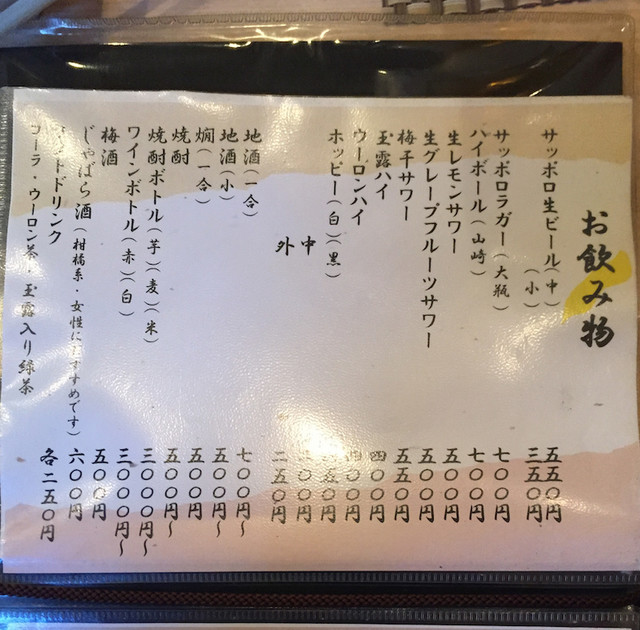 お飲み物
サッポロ生ビール(中) 五五〇円
(小) 三五〇円
サッポロラガー(大瓶) 七〇〇円
ハイボール(山崎) 七〇〇円
生レモンサワー 五〇〇円
生グレープフルーツサワー 五〇〇円
梅干サワー 五五〇円
玉露ハイ 四〇〇円
ウーロンハイ 四〇〇円
ホッピー(白)(黒) 五〇円
中 〇〇円
外 二五〇円
地酒(一合) 七〇〇円〜
地酒(小) 五〇〇円〜
燗(一合) 五〇〇円
焼酎 五〇〇円〜
焼酎ボトル(芋)(麦)(米) 三〇〇〇円〜
ワインボトル(赤)(白) 三〇〇〇円〜
梅酒 五〇〇円
じゃばら酒(柑橘系・女性におすすめです) 六〇〇円
ソフトドリンク 各二五〇円
コーラ・ウーロン茶・玉露入り緑茶